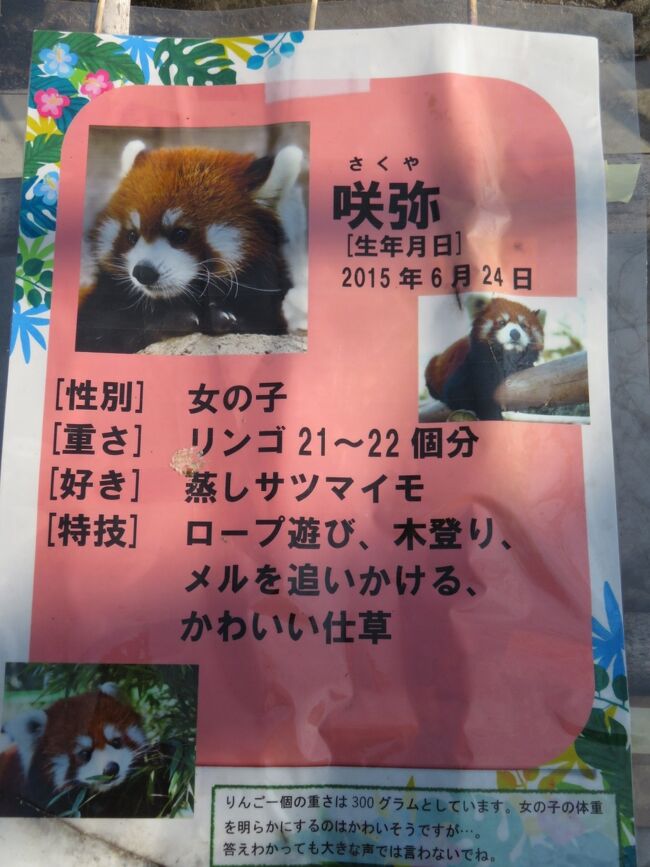 さくや
咲弥
[生年月日]
2015年6月24日
[性別] 女の子
[重さ] リンゴ21～22個分
[好き] 蒸しサツマイモ
[特技] ロープ遊び、木登り、
メルを追いかける、
かわいい仕草
りんご一個の重さは300グラムとしています。女の子の体重
を明らかにするのはかわいそうですが…。
答えわかっても大きな声では言わないでね。